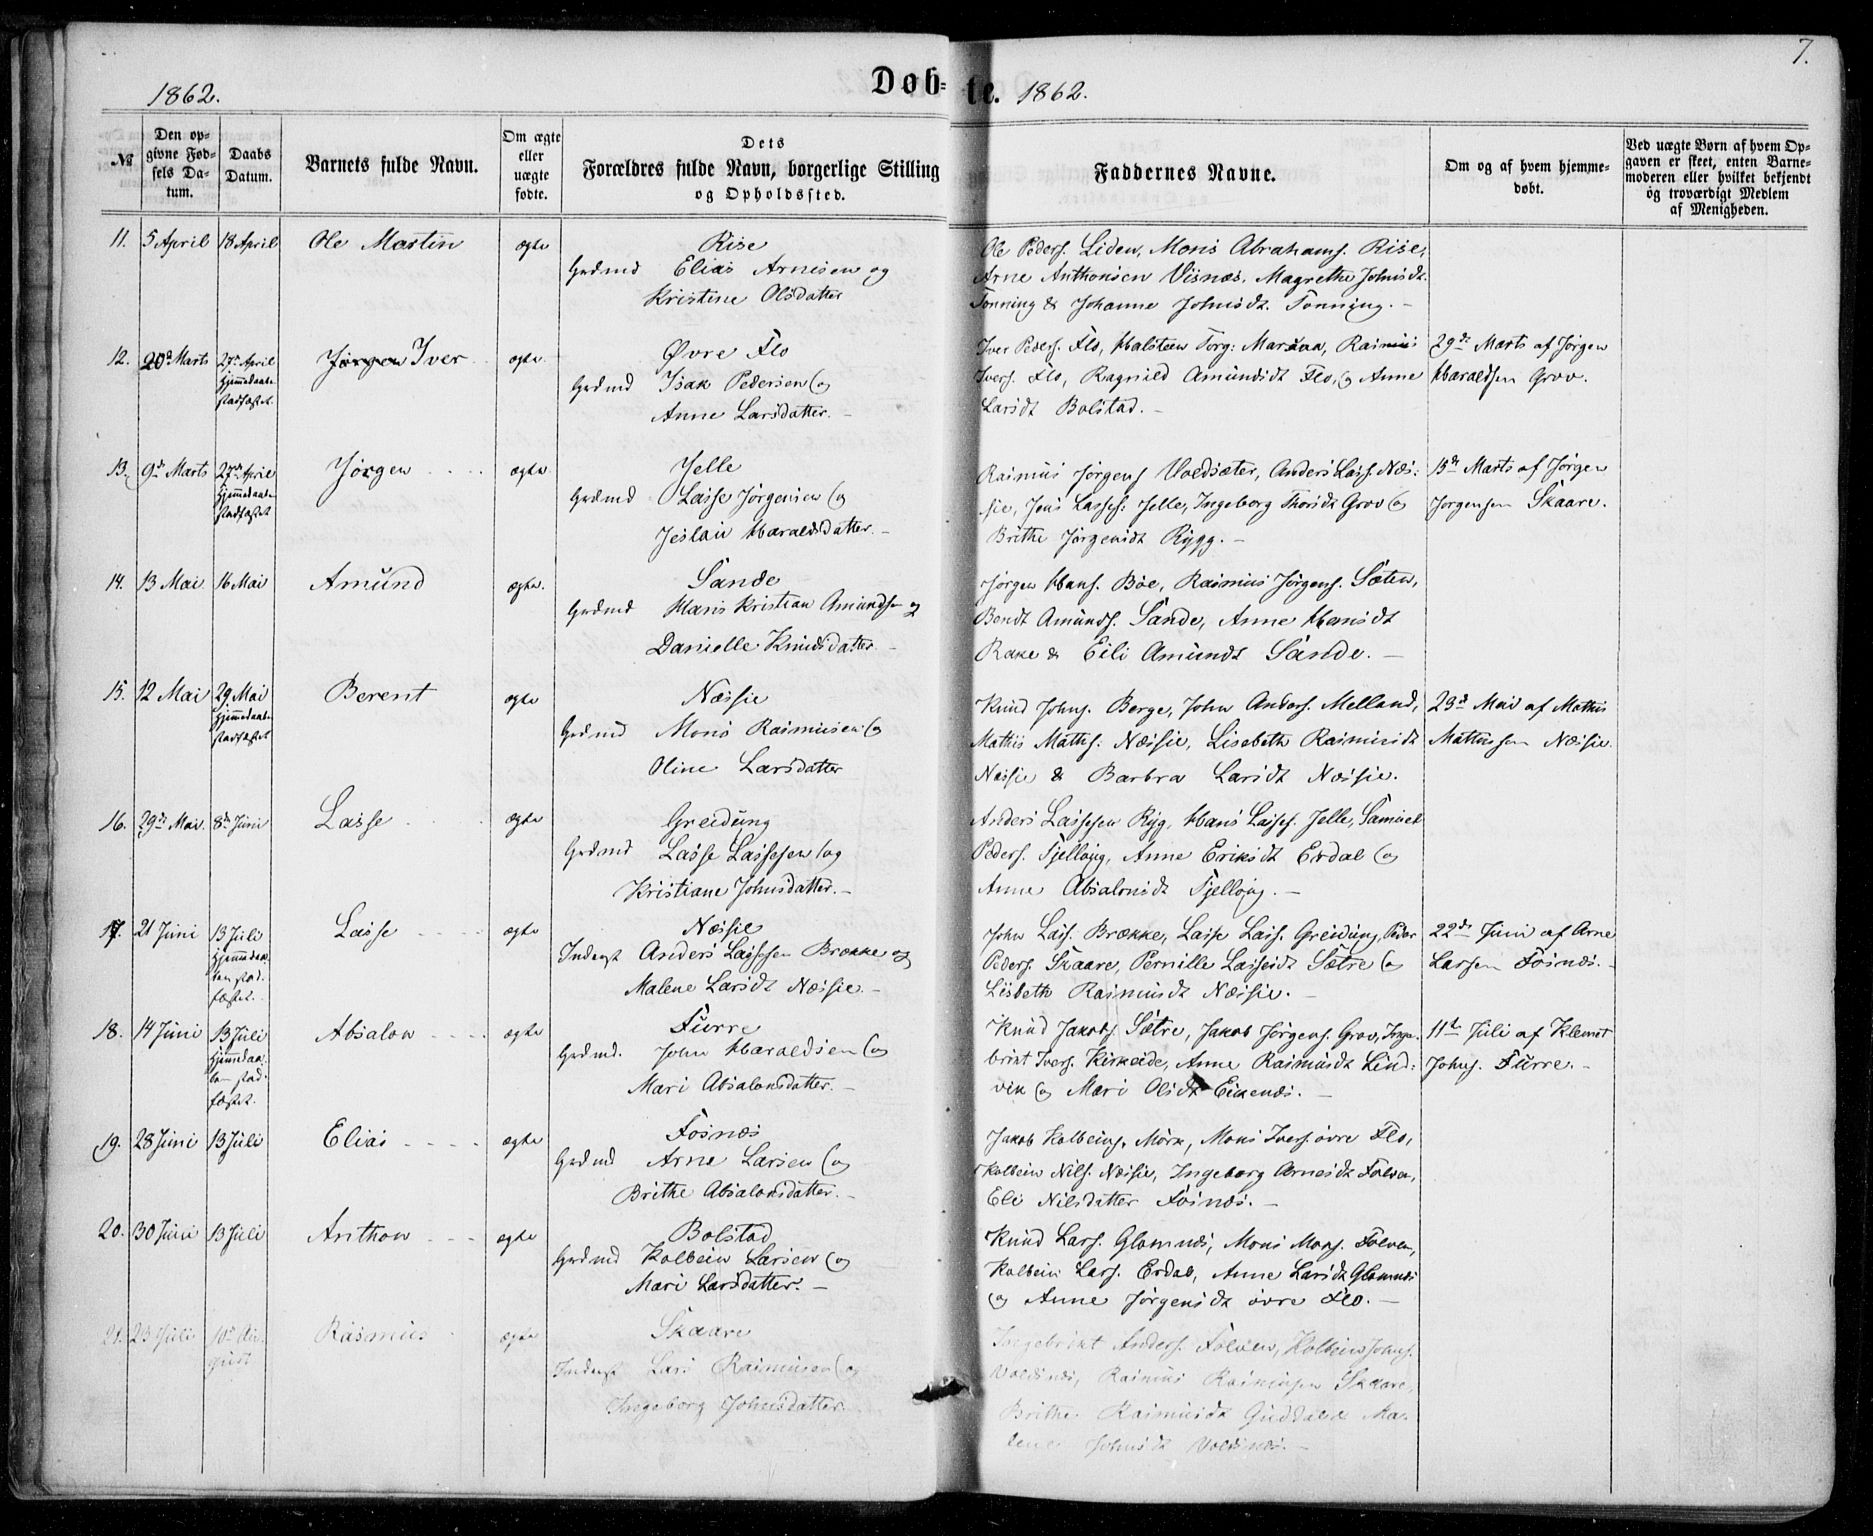 7.
1862.
Døb-
te. 1862.
№
Den op-
givne Fød-
sels Da-
tum.
Daabs
Datum.
Barnets fulde Navn.
Om ægte
eller
uægte
fødte.
Dets
Forældres fulde Navn, borgerlige Stilling
og Opholdssted.
Faddernes Navne.
Om og af hvem hjemme-
døbt.
Ved uægte Børn af hvem Op-
gaven er skeet, enten Barne-
moderen eller hvilket bekjendt
og troværdigt Medlem
af Menigheden.
11. 5 April 18 April Ole Martin ægte
Rise
Grdmd Elias Arnesen og
Kristine Olsdatter
Ole Peders. Liden, Mons Abrahams. Rise,
Arne Anthonsen Visnæs, Magrethe Johnsdt.
Tonning & Johanne Johnsdt. Tonning. -
12. 20de Marts 27de April Jørgen Iver ægte
Hjemmedaaben
stadfæstet.
Øvre Flo
Grdmd Isak Pedersen og
Anne Larsdatter. -
Iver Peders. Flo, Halsteen Torg: Rasmus
Ivers. Flo, Ragnild Amundsdt Flo, og Anne
Larsdt Bolstad. -
29de Marts af Jørgen
Haraldsen Grov.
13. 9de Marts 27de April Jørgen ægte
Hjemmedaaben
stadfæstet
Jelle
Grdmd Lasse Jørgensen og
Haraldsdatter. -
Rasmus Jørgens Voldsæter, Anders Lass. Næs-
sie, Jens Lasses: Jelle, Ingeborg Thorsdt Grov og
Brithe Jørgensdt Rygg. -
15de Marts af Jørgen
Jørgensen Skaare.
14. 13 Mai 16 Mai Amund ægte.
Sande
Grdmd Hans Kristian Amundsen og
Danielle Knudsdatter -
Jørgen Hans. Bøe, Rasmus Jørgens. Sæten,
Bendt Amunds. Sande, Anne Hansdt
Rake & Eili Amundsdt Sande. -
15. 12 Mai 29. Mai Berent ægte
Hjemmedaaben
stadfæstet
Næssie
Grdmd Mons Rasmusen og
Oline Larsdatter
Knud Johns. Berge, John Anders. Melland,
Mathis Maths: Næssie, Lisabeth Rasmusdt
Næssie & Barbra Larsdt Næssie.
23de Mai af Mathis
Mathissen Næssie.
16. 29de Mai 8de Juni Lasse ægte
Greidung
Grdmd Lasse Lassesen og
Kristiane Johnsdatter. -
Anders Lassesen Ryg, Hans Lasses. Jelle, Samuel
Peders. Fjelløig, Anne Eriksdt Erdal og
Anne Absalonsdt Fjelløig. -
17. 21 Juni 13 Juli Lasse ægte
Hjemmedaa-
ben stad-
fæstet.
Næssie
Inderst Anders Lassesen Brække og
Malene Larsdt Næssie. -
John Lass. Brække, Lasse Lass. Greidung, Peder
Peders. Skaare, Pernille Lassesdt Sætre og
Lisbeth Rasmusdt Næssie. -
22de Juni af Arne
Larsen Fosnæs. -
18. 14 Juni 13 Juli Absalon ægte
Hjemmedaa-
ben stad-
fæstet.
Furre
Grdmd. John Haraldsen og
Mari Absalonsdatter. -
Knud Jakobs. Sætre, Jakob Jørgens. Grov, Inge-
brikt Ivers. Kirkeide, Anne Rasmusdt Lind-
vik og Mari Olsdt Eikenæs. -
11te Juli af Klemet
Johns. Furre. -
19. 28 Juni 13 Juli Elias ægte
Fosnæs
Grdmd Arne Larsen og
Brithe Absalonsdatter. -
Jakob Kolbeins. Mørk, Mons Ivers. øvre Flo,
Kolbein Nils. Næssie, Ingeborg Arnesdt Folven,
Eli Nilsdatter Fosnæs. -
20. 30 Juni 13 Juli Anthon ægte
Bolstad
Grdmd Kolbein Larsen og
Mari Larsdatter. -
Knud Lars. Glomnæs, Mons Mons. Folven,
Kolbein Lars. Erdal, Anne Larsdt Glomnæs
og Anne Jørgensdt øvre Flo. -
21. 23 Juli 10de Au- Rasmus ægte
gust
Skaare
Inderst Lars Rasmusen og
Ingeborg Johnsdatter.
Ingebrikt Anders. Folven, Kolbein Johns.
Voldsnæs, Rasmus Rasmusen Skaare,
Brithe Rasmusdt Guddal & Ma-
lene Johnsdt Voldsnæs. -